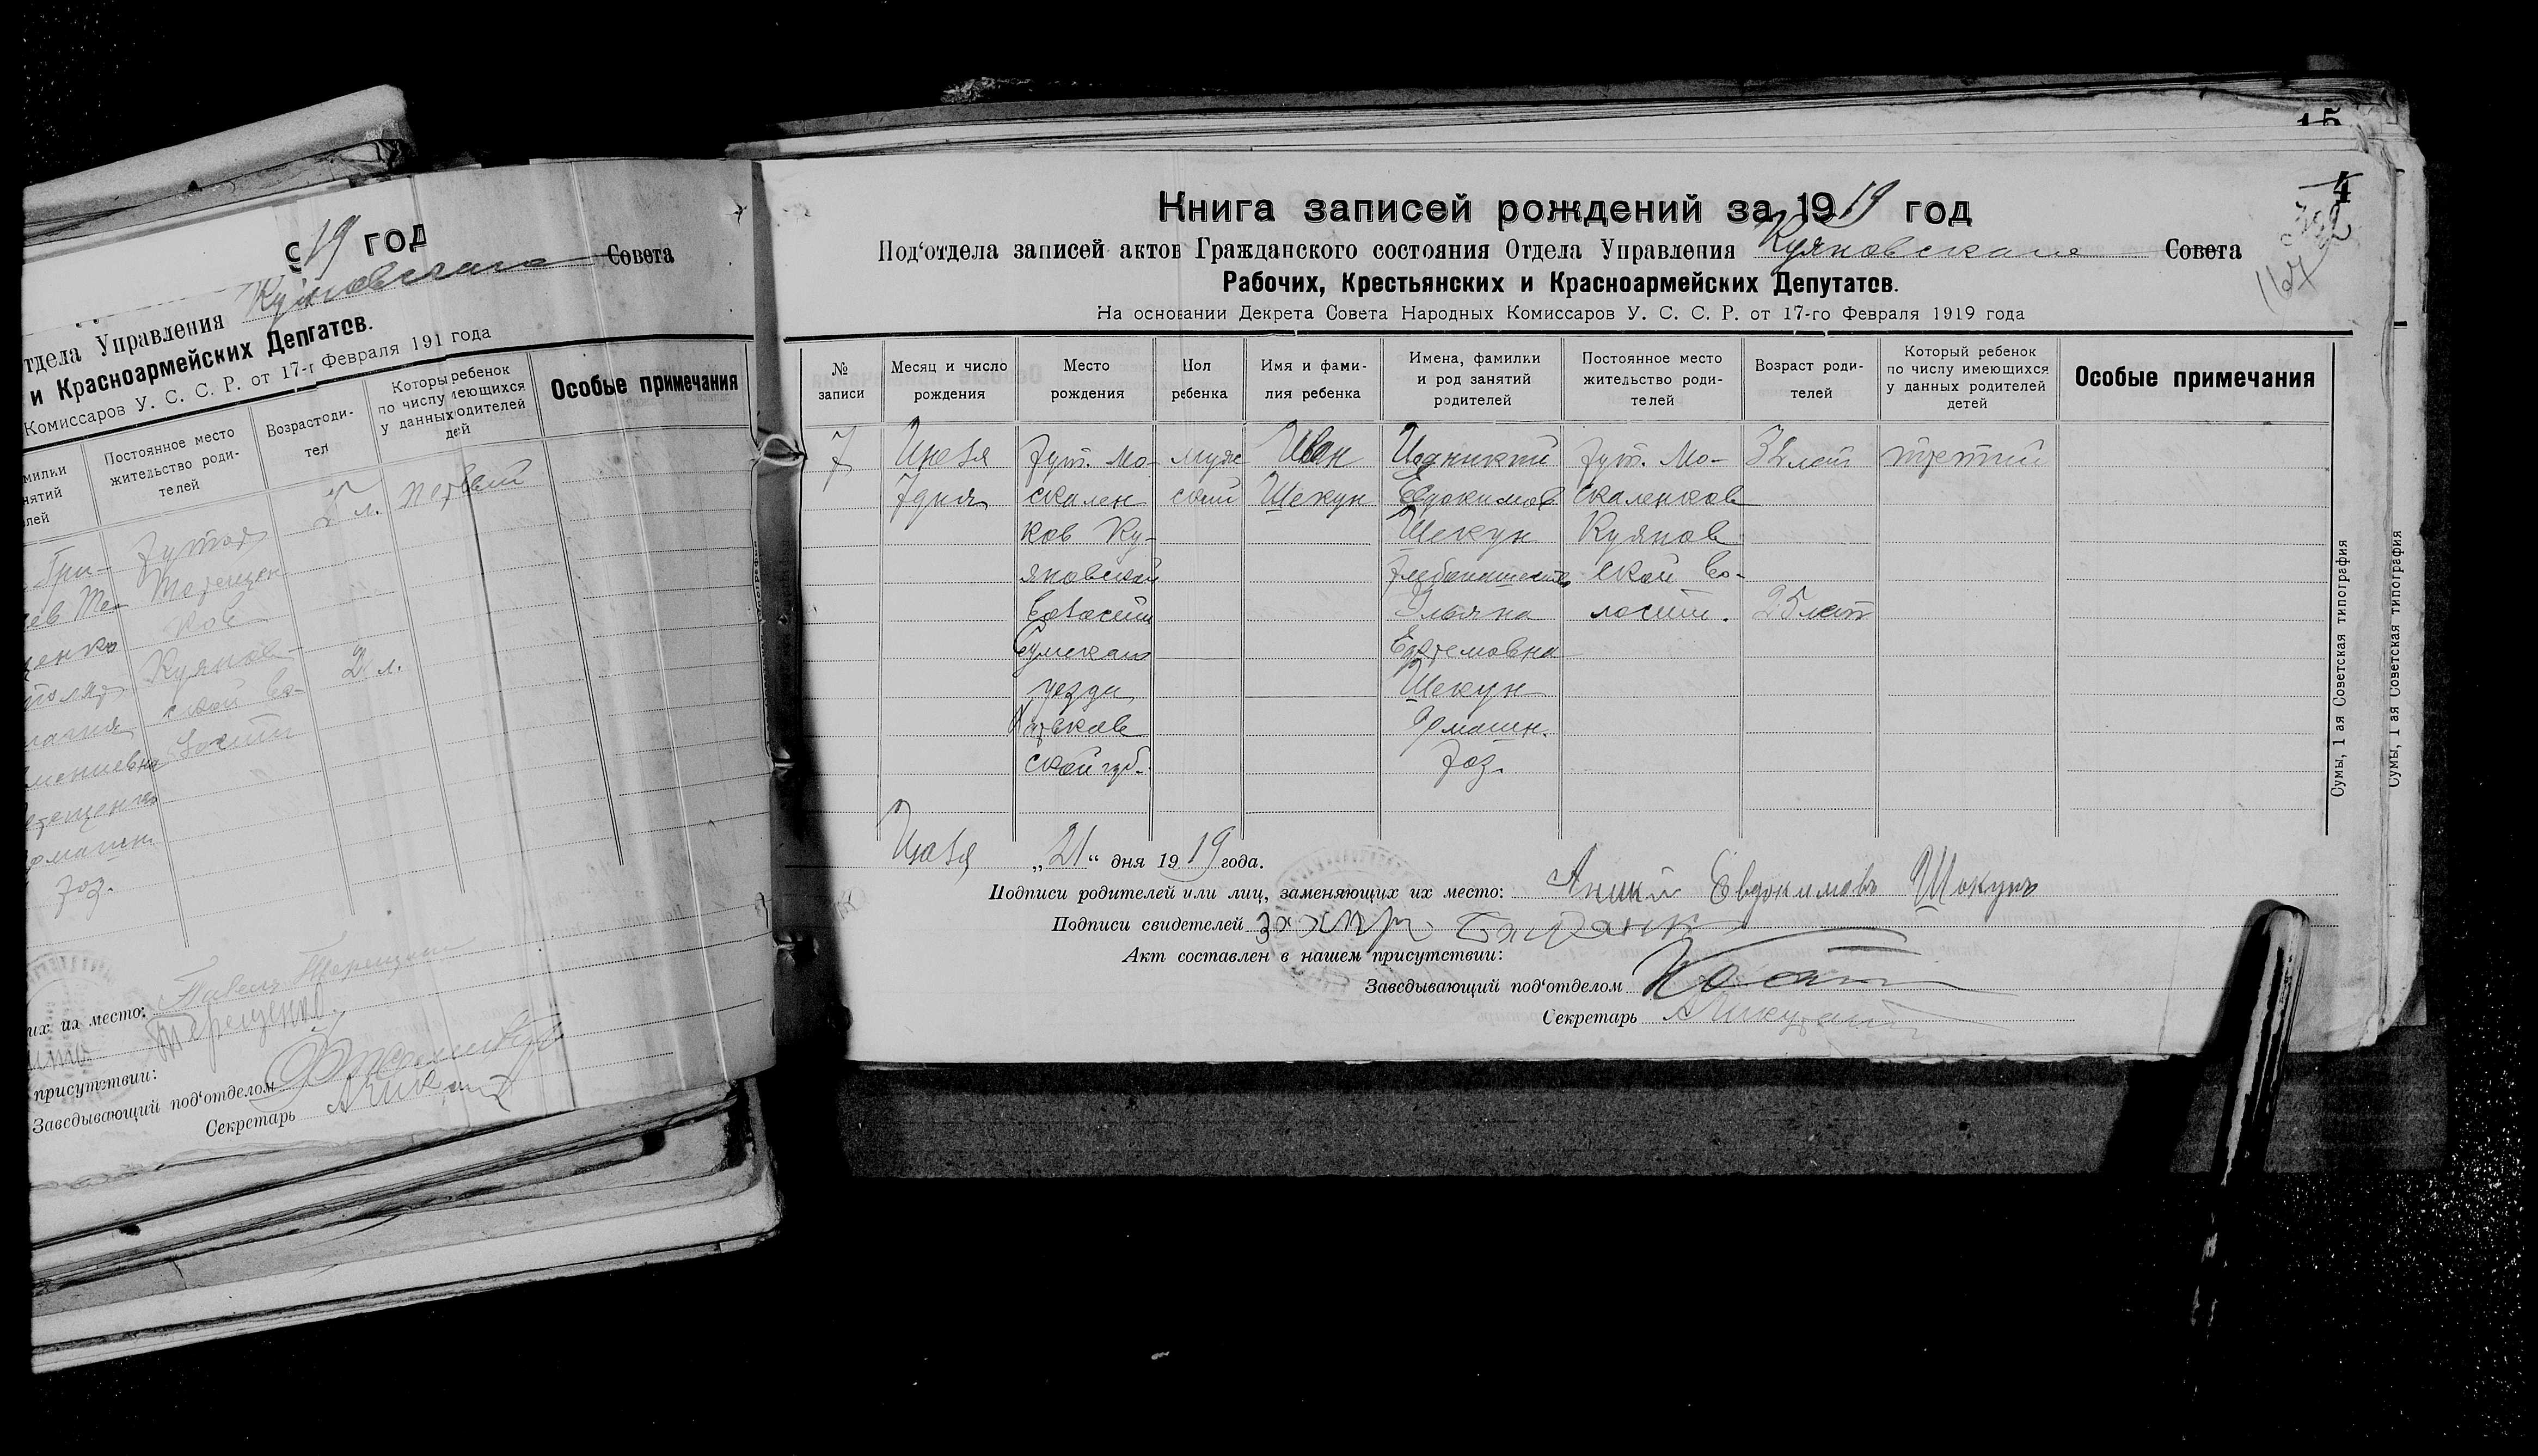 19 год
Куяновскаго Совета
тдела Управления
и Красноармейских Депутатов.
Комиссаров У. С. С. Р. от 17-г Февраля 191 года
милии
нятий
лей
Постоянное место
жительство роди-
телей
Возраст оди-
тел
Которы ребенок
по числу меющихся
у данных одителей
дей
Особые примечания
Гри-
хутор
л. первый
ев Те-
Терещен
ков
щенко
Куянов-
2 л.
ской во-
лости
рещенко
хоз.
их их место: Павел Терещенко
Терещенко
присутствии:
Заведывающий под‘отделом
Секретарь
15
4
Книга записей рождений за 1919 год
Под‘отдела записей актов Гражданского состояния Отдела Управления Куяновскаго Совета
Рабочих, Крестьянских и Красноармейских Депутатов.
На основании Декрета Совета Народных Комиссаров У. С. С. Р. от 17-го Февраля 1919 года
№
записи
Месяц и число
рождения
Место
рождения
Пол
ребенка
Имя и фами-
лия ребенка
Имена, фамилии
и род занятий
родителей
Постоянное место
жительство роди-
телей
Возраст роди-
телей
Который ребенок
по числу имеющихся
у данных родителей
детей
Особые примечания
7
Июля
7 дня
хут. Мо-
скален
ков Ку-
яновской
волости
Сумскаго
уезда
Харьков
ской губ.
муж
ской
Иван
Шекун
Евдокимов
Шекун
хлебопашество
Ульяна
Ефремовна
Шекун
домашн.
хоз.
хут. Мо-
скаленков
Куянов
ской во-
лости.
32 лет
25 лет
третий
Июля „21“ дня 1919 года.
Подписи родителей или лиц, заменяющих их место: Аникий Евдокимовъ Шокунъ
Подписи свидетелей
Акт составлен в нашем присутствии:
Заведывающий под‘отделом
Секретарь
Сумы, 1 ая Советская типография
Сумы, 1 ая Советская типография